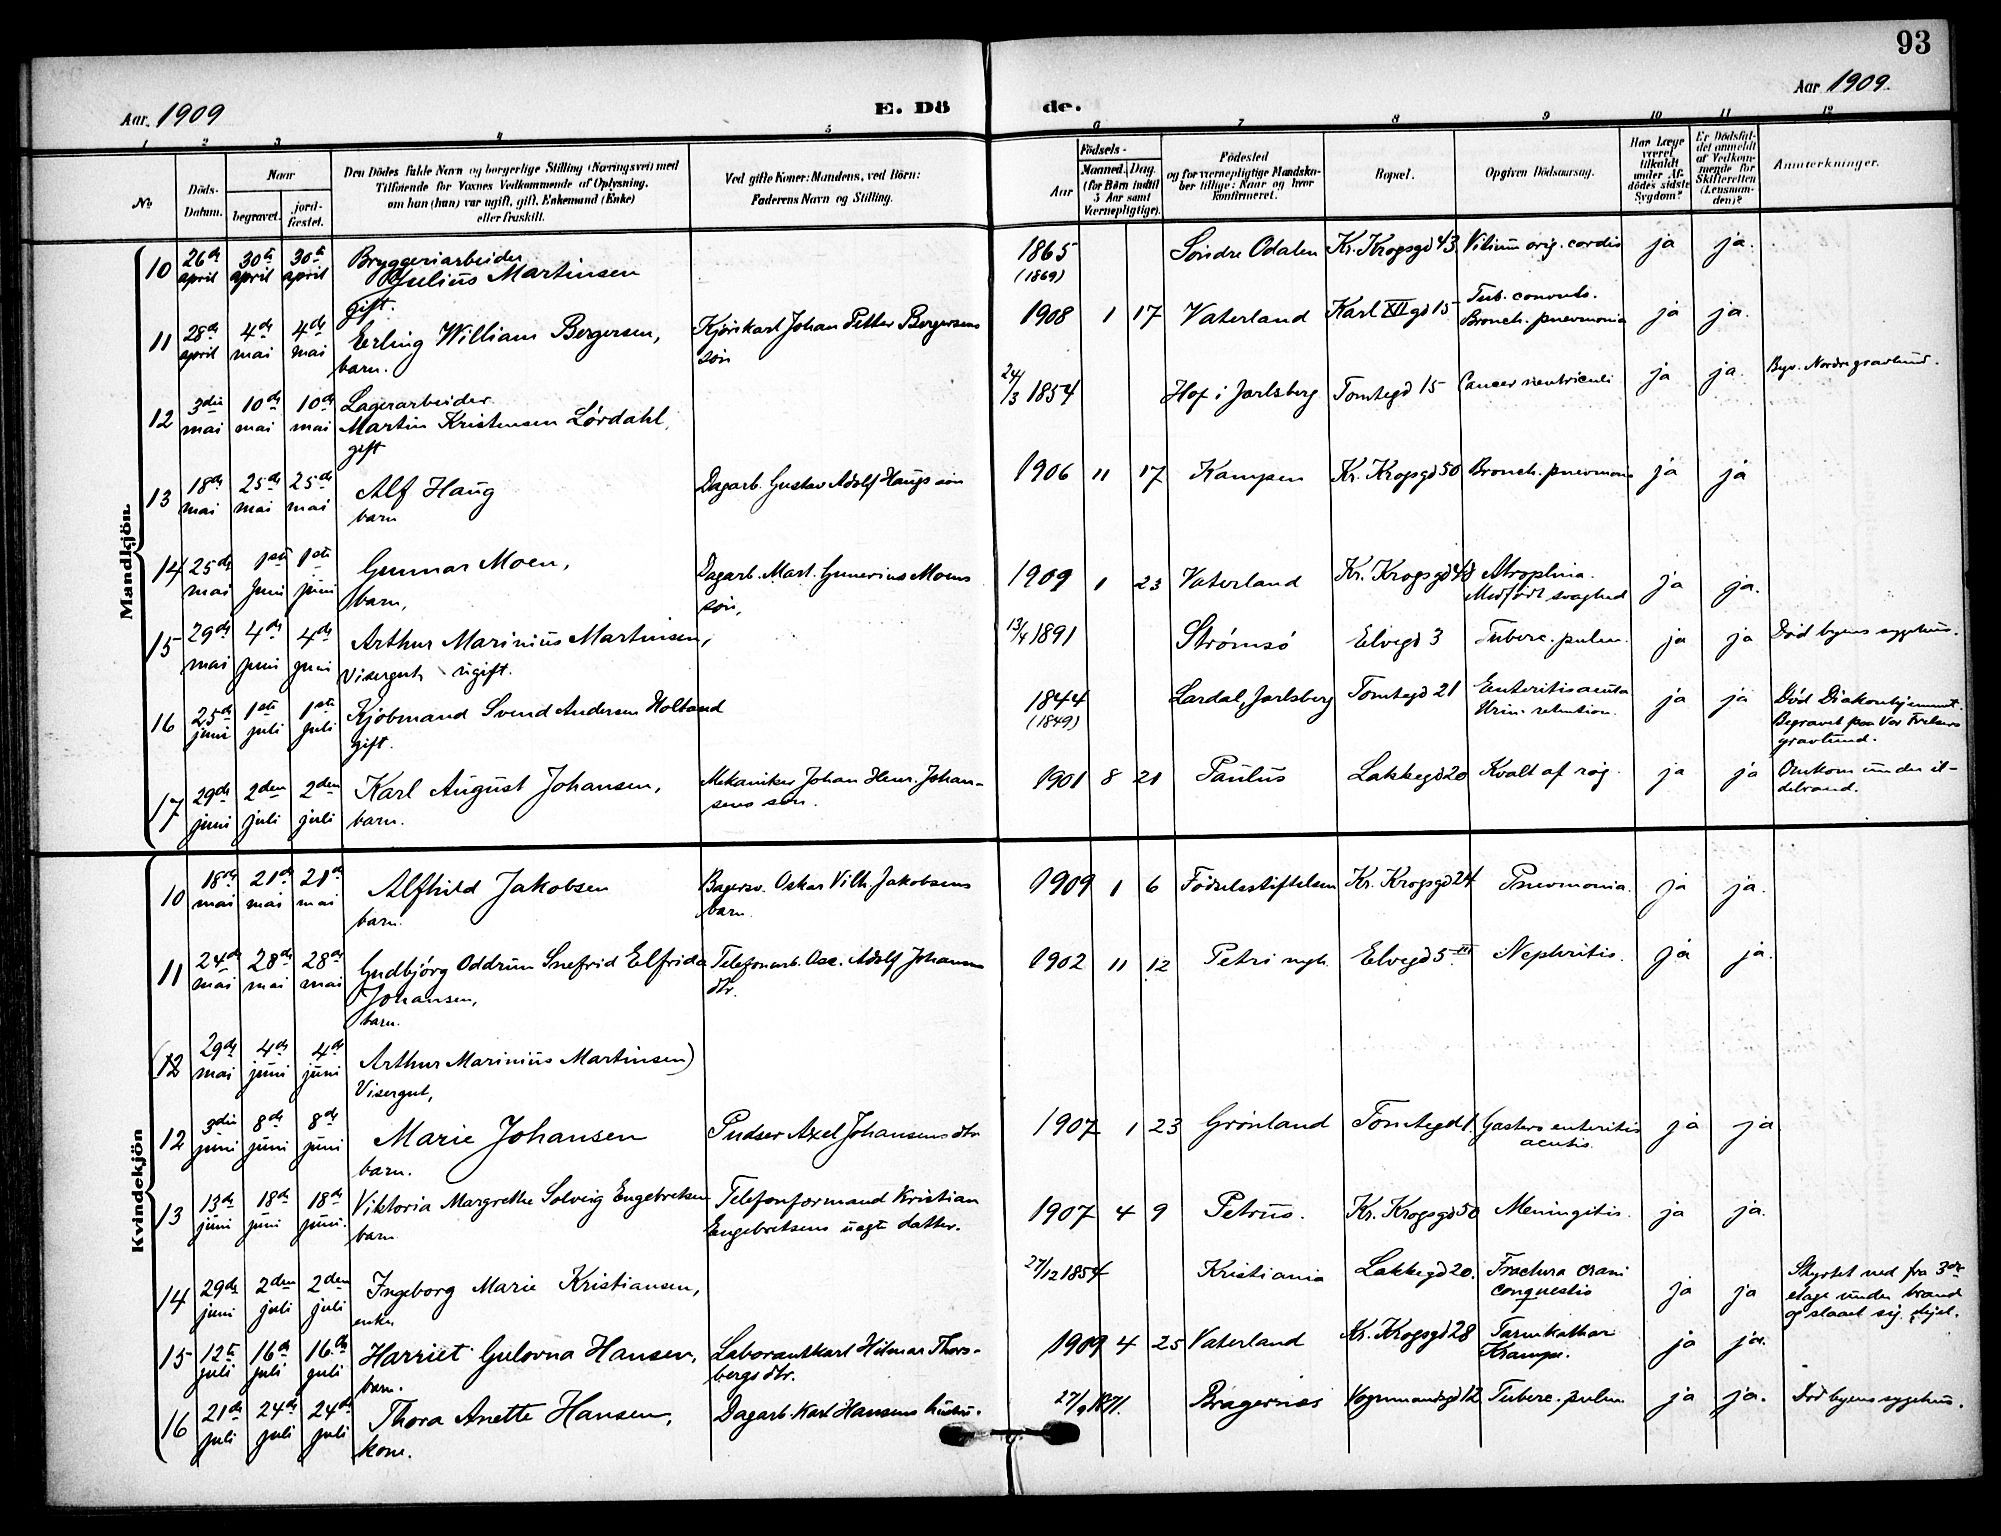 93
Aar 1909
E. Dö de.
Aar 1909.
1 2 3 4 5 6 7 8 9 10 11 12
No
Döds-
Datum.
Naar
begravet.
jord-
fæstet.
Den Dödes fulde Navn og borgerlige Stilling (Næringsvei) med
Tilföiende for Voxnes Vedkommende af Oplysning,
om han (hun) var ugift, gift, Enkemand (Enke)
eller fraskilt.
Ved gifte Koner: Mandens, ved Börn:
Faderens Navn og Stilling.
Födsels-
Aar
Maaned. Dag.
(for Börn indtil
5 Aar samt
Værnepligtige).
Födested
og for værnepligtige Mandska-
ber tillige: Naar og hvor
konfirmeret.
Bopæl.
Opgiven Dödsaarsag.
Har Læge
været
tilkaldt
under Af-
dödes sidste
Sygdom?
Er Dödsfal-
det anmeldt
af Vedkom-
mende for
Skifteretten
(Lensman-
den)?
Anmærkninger.
Mandkjön.
10 26de april 30te april 30te april Bryggeriarbeider
Julius Martinsen
gift. 1865 (1869) Söndre Odalen Kr. Krogsgd 43 Vitium org. cordis ja ja.
11 28de april 4de mai 4de mai Erling William Bergersen,
barn. Kjörekarl Johan Petter Bergersens
sön 1908 1 17 Vaterland Karl XII gd 15 Tub. convuls.
Bronch. pnevmonia ja ja.
12 3die mai 10de mai 10de mai Lagerarbeider
Martin Kristensen Lördahl,
gift 24/3 1854 Hof i Jarlsberg Tomtegd 15 Cancer ventriculi ja ja. Byv. Nordre gravlund.
13 18de mai 25de mai 25de mai Alf Haug
barn Dagarb. Gustav Adolf Haugs sön 1906 11 17 Kampen Kr. Krogsgd 50 Bronch. pnevmoni ja ja
14 25de mai 1ste juni 1ste juni Gunnar Moen,
barn, Dagarb. Mart. Gunerius Moens
sön, 1909 1 23 Vaterland Kr. Krogsgd 48 Atrophia.
Medfödt svaghed ja ja.
15 29de mai 4de juni 4de juni Arthur Marinius Martinsen,
Visergut, ugift. 13/4 1891 Strømsø Elvegd 3 Tuberc. pulm. ja ja Död byens sygehus.
16 25de juni 1ste juli 1ste juli Kjöbmand Svend Andersen Holtand
gift. 1844 (1849) Lardal, Jarlsberg Tomtegd 21 Enteritis acuta
Urin-retention. ja ja Död Diakonhjemmet.
Begravet paa Vor Frelsers
gravlund.
17 29de juni 2den juli 2den juli Karl August Johansen,
barn. Mekaniker Johan Henr. Johan-
sens sön. 1901 8 21 Paulus Lakkegd 20 Kvalt af røg. ja ja Omkom under il-
debrand.
Kvindekjön
10 18de mai 21de mai 21de mai Alfhild Jakobsen
barn. Bagersv. Oskar Vilh. Jakobsens
barn. 1909 1 6 Födselsstiftelsen Kr. Krogsgd 24 Pnevmonia. ja ja.
11 24de mai 28de mai 28de mai Gudbjörg Oddrun Snefrid Elfrida
Johansen,
barn. Telefonarb. Osc. Adolf Johansens
dtr. 1902 11 12 Petri mgh. Elvegd 5 III Nephritis. ja ja.
(12 29de mai 4de juni 4de juni Arthur Marinius Martinsen)
Visergut,
12 3die juni 8de juni 8de juni Marie Johansen
barn. Pudser Axel Johansens dtr 1907 1 23 Grönland Tomtegd 1. Gastero enteritis
acutis. ja ja
13 13de juni 18de juni 18de juni. Viktoria Margrethe Solveig Engebretsen
barn. Telefonformand Kristian
Engebretsens uegte datter. 1907 4 9 Petrus. Kr. Krogsgd 50 Meningitis. ja ja.
14 29de juni 2den juli 2den juli Ingeborg Marie Kristiansen,
enke 27/12 1854 Kristiania Lakkegd 20. Fractura crani
conquestio ja ja Styrtet ned fra 3die
etage under brand
og slaaet sig ihjel.
15 12te juli 16de juli 16de juli Harriet Gulovna Hansen,
barn. Laborantkarl Hilmar Thors-
bergs dtr. 1909 4 25 Vaterland Kr. Krogsgd 28 Tarmkathar
Krampe. ja ja.
16 21de juli 24de juli 24de juli Thora Anette Hansen,
kone. Dagarb. Karl Hansens hustru. 27/9 1871. Bragernes Vognmandsgd 12 Tuberc. pulm ja ja. Död byens sygehus.